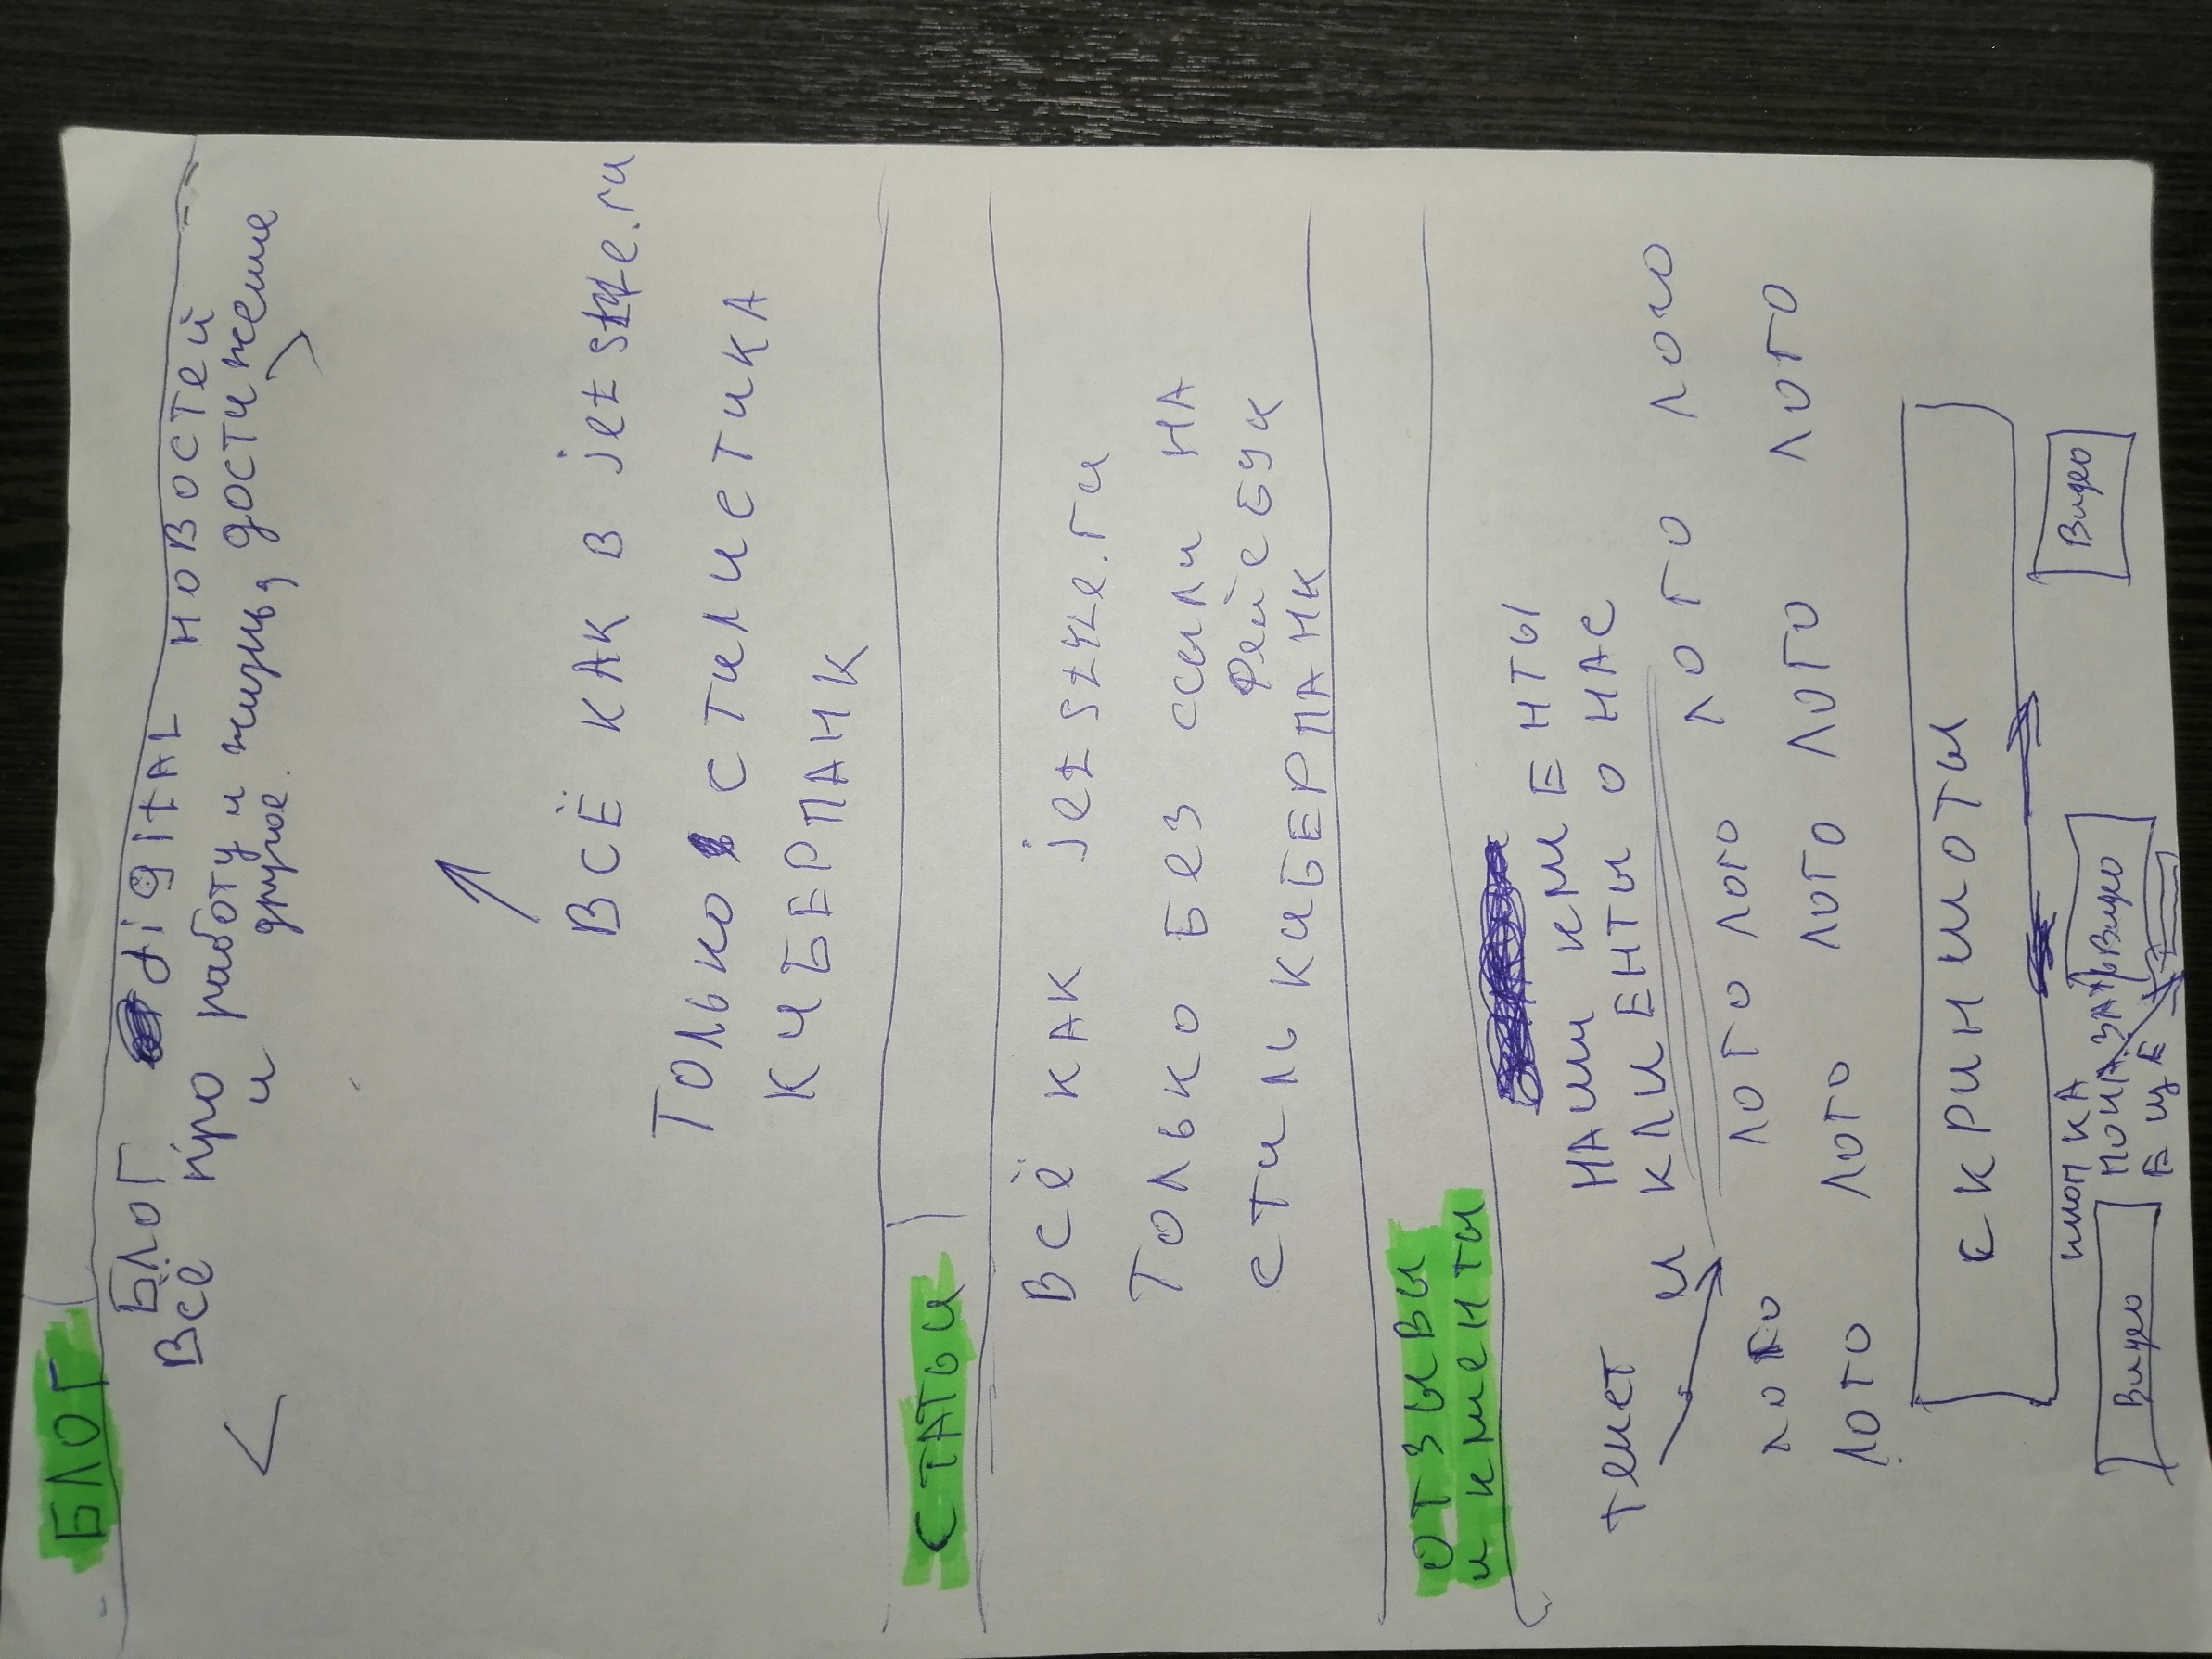 БЛОГ
БЛОГ digitAL НОВОСТЕЙ
Всё про работу и жизнь, достижение
и другое.
ВСЁ КАК В jetstyle.ru
Только стилистика
КИБЕРПАНК
СТАТЬИ
ВСЁ КАК jetstyle.ru
Только без ссылки НА
Фейсбук
стиль КИБЕРПАНК
ОТЗЫВЫ
и клиенты
НАШИ КЛИЕНТЫ
текст и КЛИЕНТЫ О НАС
лого лого лого лого лого
лого лого лого лого лого
скриншоты
кнопка
показать
ЕЩЕ
Видео Видео Видео